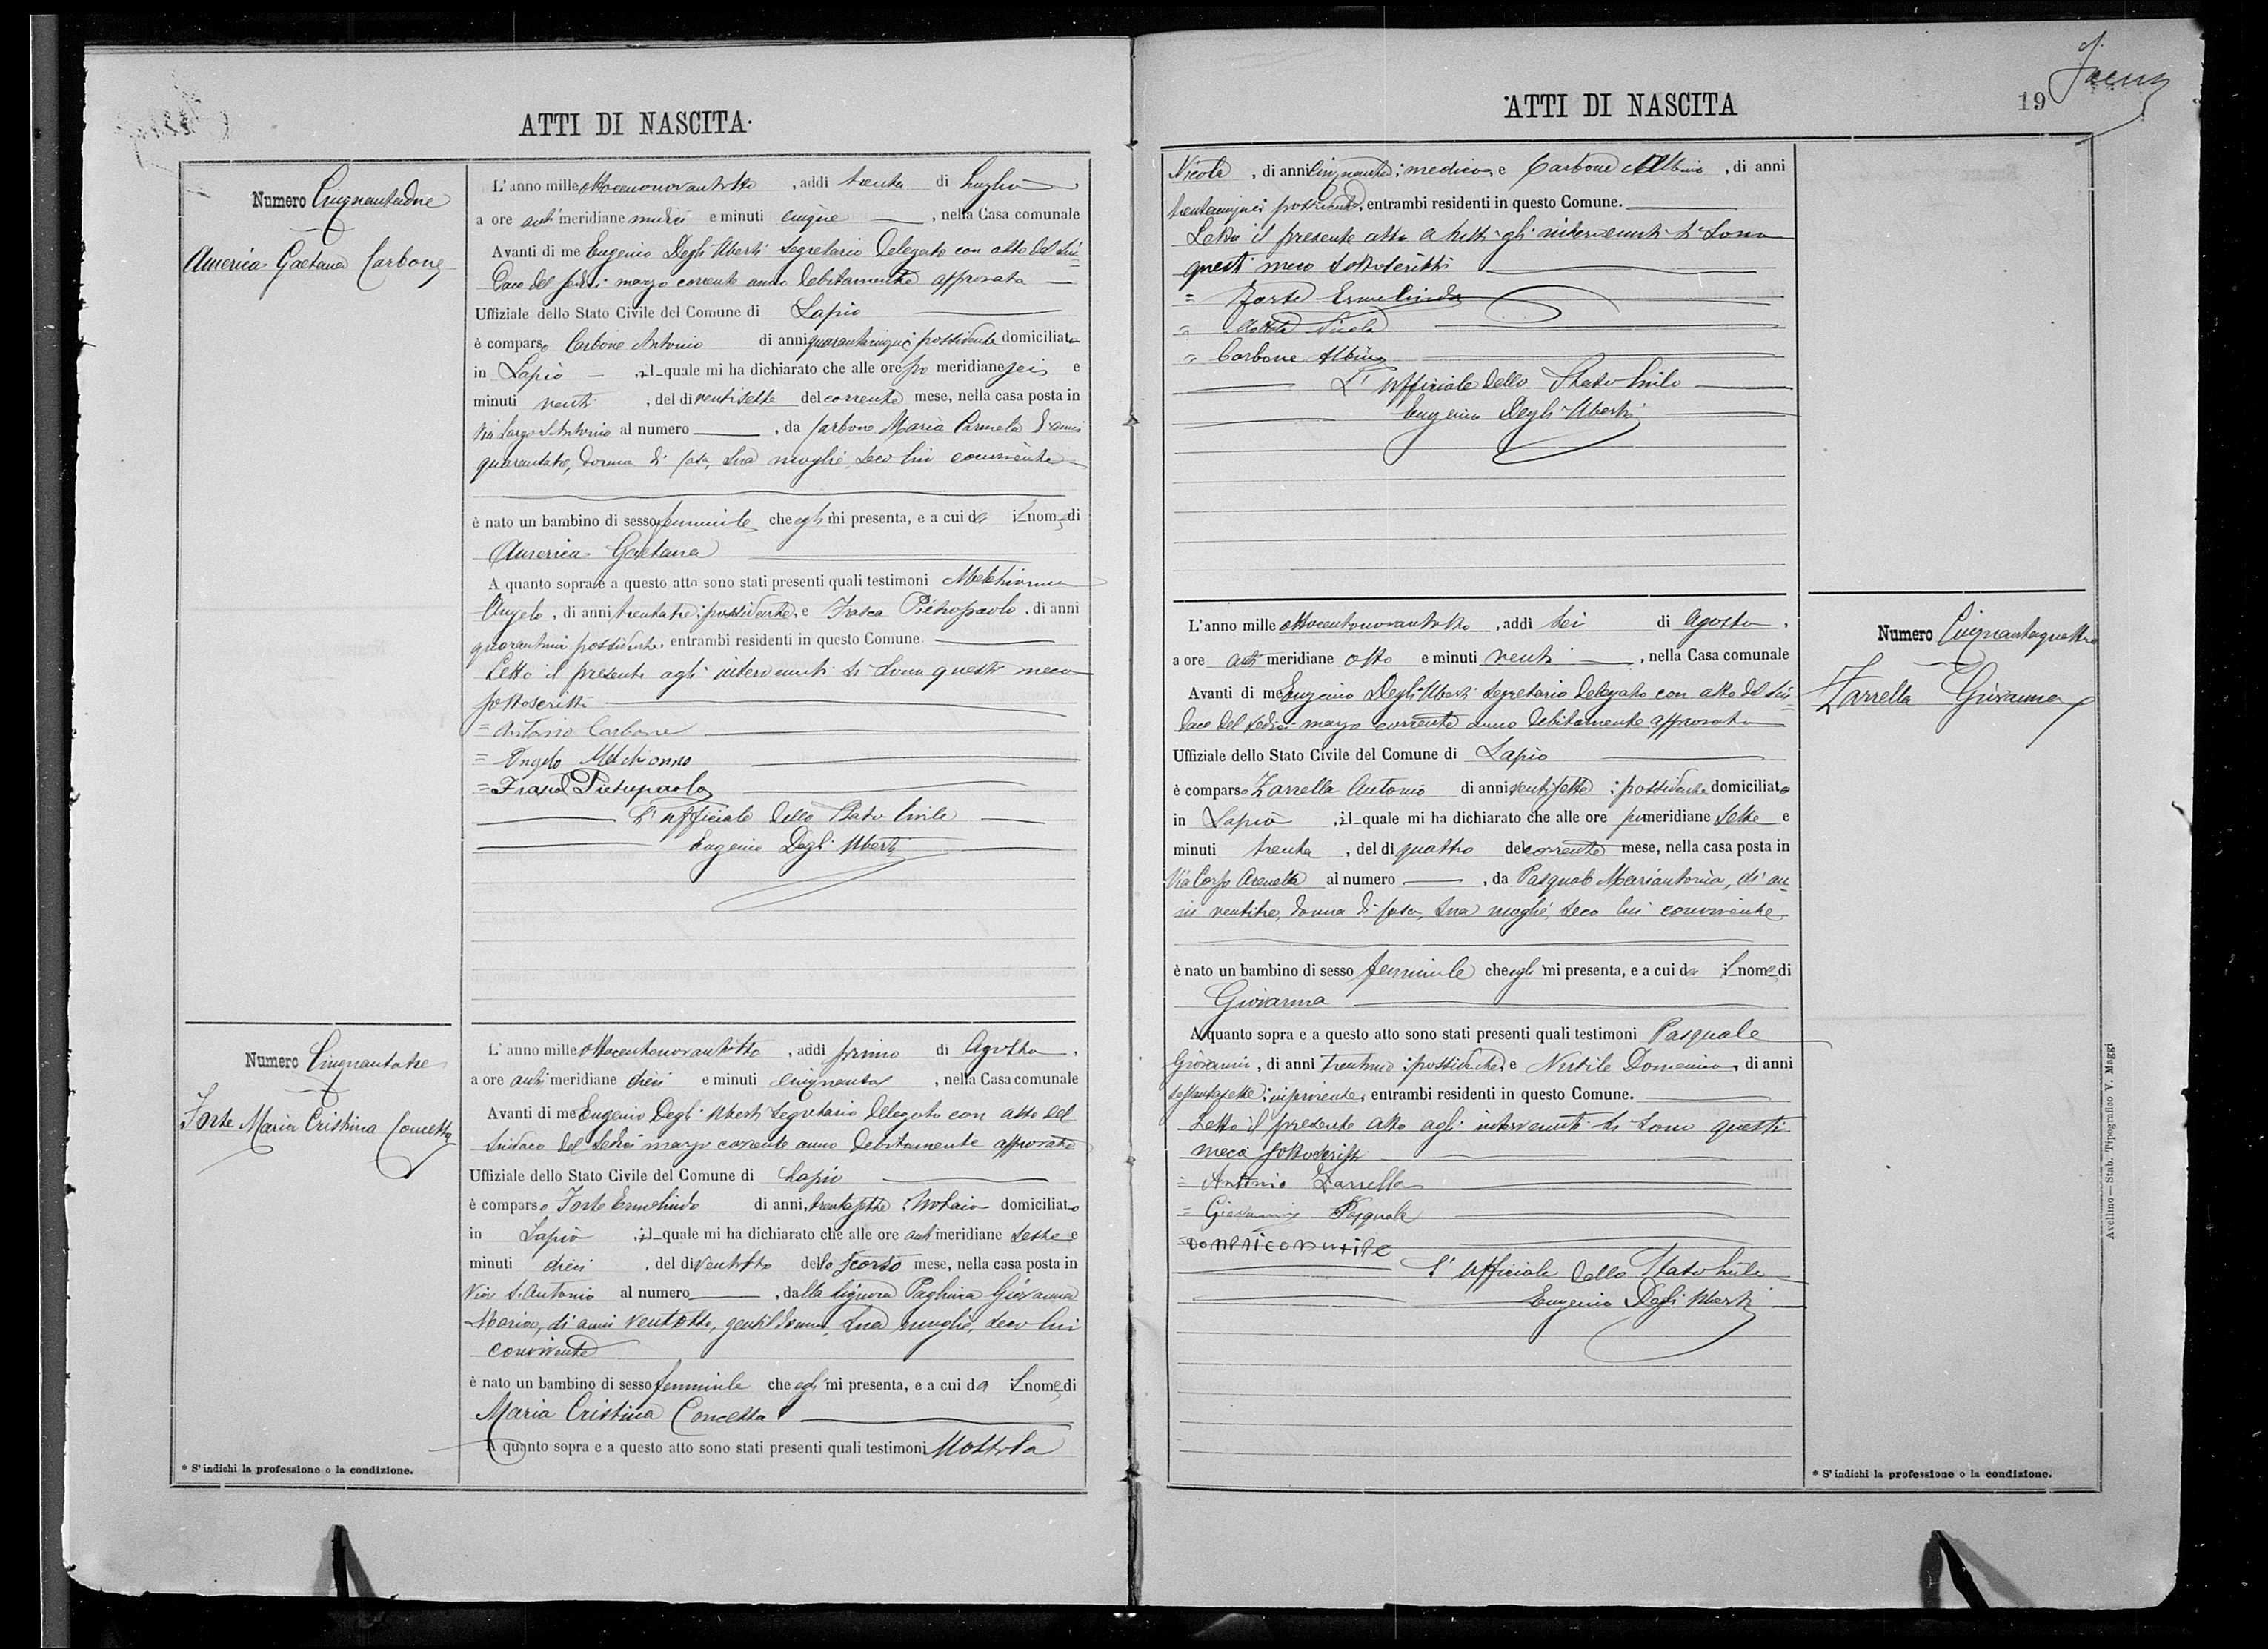 ATTI DI NASCITA
Numero Cinquantadue
America Gaetana Carbone
L'anno mille ottocentonovantotto, addì trenta di Luglio,
a ore anti meridiane undici e minuti cinque, nella Casa comunale
Avanti di me Eugenio Degli Uberti Segretario Delegato con atto del Sin-
daco del sedici marzo corrente anno debitamente approvato
Uffiziale dello Stato Civile del Comune di Lapio
è comparso Carbone Antonio di anni quarantacinque possidente domiciliato
in Lapio, il quale mi ha dichiarato che alle ore po meridiane sei e
minuti venti, del dì ventisette del corrente mese, nella casa posta in
Via Largo S. Antonio al numero, da Carbone Maria Carmela di anni
quarantatre, donna di casa, sua moglie, seco lui convivente
è nato un bambino di sesso femminile che egli mi presenta, e a cui dà il nome di
America Gaetana
A quanto sopra e a questo atto sono stati presenti quali testimoni Melchionna
Angelo, di anni trentatre, possidente, e Frasca Pietropaolo, di anni
possidente, entrambi residenti in questo Comune.
Letto il presente agli intervenuti si sono questi meco
sottoscritti
= Antonio Carbone
= Angelo Melchionna
= Frasca Pietropaolo
L'Ufficiale dello Stato Civile
Eugenio Degli Uberti
Numero Cinquantatre
Forte Maria Cristina Concetta
L'anno mille ottocentonovantotto, addì primo di Agosto,
a ore anti meridiane dieci e minuti cinquanta, nella Casa comunale
Avanti di me Eugenio Degli Uberti Segretario Delegato con atto del
Sindaco del sedici marzo corrente anno debitamente approvato
Uffiziale dello Stato Civile del Comune di Lapio
è comparso Forte Ermelindo di anni trentasette, Notaio domiciliato
in Lapio, il quale mi ha dichiarato che alle ore anti meridiane sette e
minuti dieci, del dì ventotto dello scorso mese, nella casa posta in
Via S. Antonio al numero, dalla Signora Giovanna
Maria, di anni ventotto, gentildonna, sua moglie, seco lui
convivente
è nato un bambino di sesso femminile che egli mi presenta, e a cui da il nome di
Maria Cristina Concetta
A quanto sopra e a questo atto sono stati presenti quali testimoni Mottola
* S'indichi la professione o la condizione.
ATTI DI NASCITA
19
Nicola, di anni cinquanta, medico, e Carbone Albino, di anni
trentacinque possidente, entrambi residenti in questo Comune.
Letto il presente atto a tutti gli intervenuti si sono
questi meco sottoscritti
= Forte Ermelindo
= Mottola Nicola
= Carbone Albino
L'Ufficiale dello Stato Civile
Eugenio Degli Uberti
L'anno mille ottocentonovantotto, addì sei di Agosto,
a ore anti meridiane otto e minuti venti, nella Casa comunale
Avanti di me Eugenio Degli Uberti Segretario Delegato con atto del Sin-
daco del sedici marzo corrente anno debitamente approvato
Uffiziale dello Stato Civile del Comune di Lapio
è comparso Zarrella Antonio di anni ventisette, possidente domiciliato
in Lapio, il quale mi ha dichiarato che alle ore pomeridiane sette e
minuti trenta, del dì quattro del corrente mese, nella casa posta in
Via Corso Arenella al numero, da Pasquale Mariantonia, di an-
ni ventitre, donna di casa, sua moglie, seco lui convivente
è nato un bambino di sesso femminile che egli mi presenta, e a cui da il nome di
Giovanna
A quanto sopra e a questo atto sono stati presenti quali testimoni Pasquale
Giovanni, di anni trentuno, possidente, e Nutile Domenico, di anni
entrambi residenti in questo Comune.
Letto il presente atto agli intervenuti si sono questi
meco sottoscritti
= Antonio Zarrella
= Giovanni Pasquale
= Domenico nutile
L'Ufficiale dello Stato Civile
Eugenio Degli Uberti
Numero Cinquantaquattro
Zarrella Giovanna
* S'indichi la professione o la condizione.
Avellino — Stab. Tipografico V. Maggi